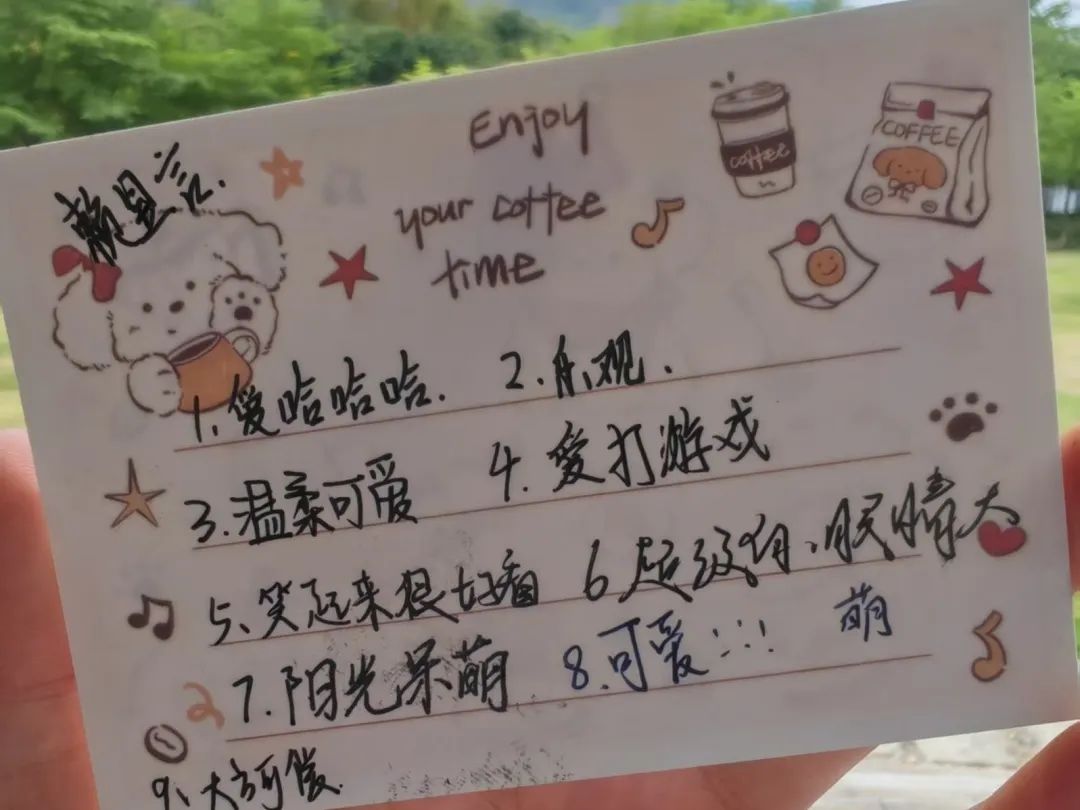 Enjoy
your coffee
time
coffee
COFFEE
1.爱哈哈哈. 2.乐观.
3.温柔可爱 4.爱打游戏
5、笑起来很好看 6超级白、眼睛大
7.阳光呆萌 8.可爱!!! 萌
9、大方可爱.